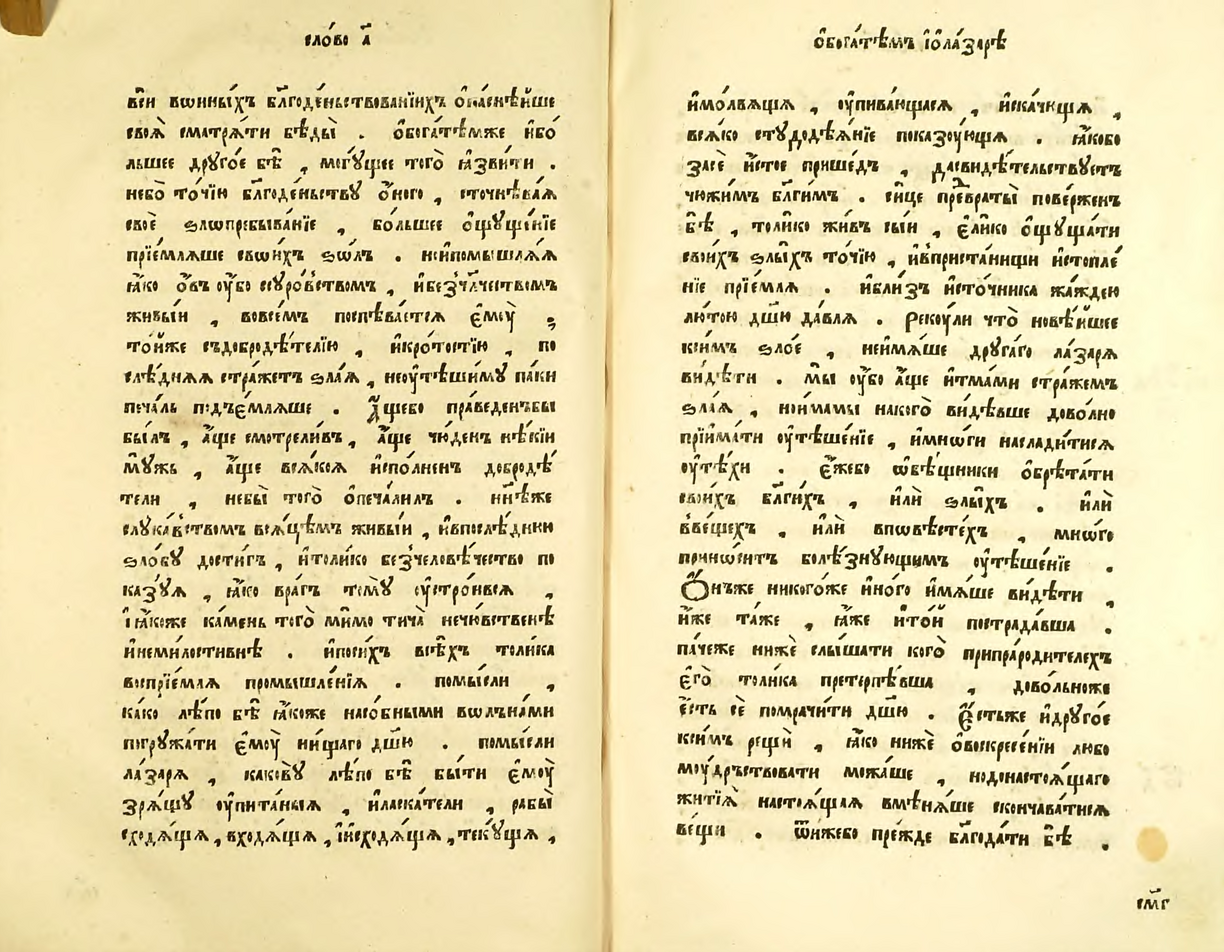 сло́во а҃
вси вѡины́хъ бл҃годе́ньствованїихъ ѻ҆па́снѣйше
своѧ̀ сматрѧ́ти бѣды̀ . ѻ҆бога́тѣмже и҆бо́
льшее друго́е бѣ̀ , могу́щее того̀ ꙗ҆зви́ти .
небо̀ то́чїю бл҃годе́ньству ѻ҆́ного , сточнѣва́ѧ
своѐ ѕлопребыва́нїе , бо́льшее ѻ҆щуще́нїе
прїе́млѧше свои́хъ ѕѡ́лъ . но и҆помышлѧ́ѧ
ꙗ҆́ко ѻ҆́въ ᲂу҆́бо ссуро́вствомъ , и҆безчл҃чествомъ
живы́и , вовсе́мъ поспѣва́етсѧ є҆моу̀ ;
то́иже съдобродѣ́телїю , и҆кро́тостїю , по
слѣ́днѧѧ стра́жетъ ѕла́ѧ , неᲂутѣ́шиму па́ки
печа́ль подъє́млѧше . А҆́щебо пра́веденъбы
бы́лъ , а҆́ще смотрели́въ , а҆́ще чю́денъ нѣ́кїи
мꙋ́жь , а҆́ще всѧ́коѧ и҆спо́лненъ добродѣ́
тели , небы̀ того̀ ѻ҆печа́лилъ . нн҃ѣже
слука́вствомъ всѧ́цѣмъ живы́и , и҆впослѣ́днюю
ѕло́бу дости́гъ , и҆то́лико безчеловѣ́чество по
казу́ѧ , ꙗ҆́ко вра́гъ тому̀ ᲂу҆стро́ивсѧ ,
і҆ ꙗ҆́коже ка́мень того̀ ми́мо тича̀ нечю́вственѣ
и҆неми́лостивнѣ . и҆поси́хъ всѣ́хъ то́лика
воспрїе́млѧ промышле́нїѧ . помы́сли ,
ка́ко лѣ́по бѣ̀ ꙗ҆́коже насо́бными вѡлъна́ми
погружа́ти є҆моу̀ ни́щаго дш҃ю . помы́сли
ла́зарѧ , како́ву лѣ́по бѣ̀ бы́ти є҆моу̀
зрѧ́щу ᲂу҆пита́ныѧ , и҆ласка́тели , рабы̀
сходѧ́щѧ , входѧ́щѧ , і҆исходѧ́щѧ , теку́щѧ ,
ѻ҆бога́тѣмъ і҆ѻла́зарѣ
и҆мо́лвѧщѧ , ᲂу҆пива́ющасѧ , и҆ска́чющѧ ,
всѧ́ко студодѣѧ́нїе пока́зоующѧ . ꙗ҆́кобо
засѐ и҆́стое прише́дъ , дасвидѣ́тельствуетъ
чюжи́мъ бл҃ги́мъ . си́це превраты̀ пове́рженъ
бѣ̀ , то́лико жи́въ сы́и , є҆ли́ко ѻ҆щуща́ти
свои́хъ ѕлы́хъ то́чїю , и҆впри́станищи и҆стопле́
нїе прїе́млѧ . и҆бли́зъ и҆сто́чника жа́ждею
лю́тою дш҃ю да́влѧ . Рекоу́ли что̀ новѣ́йшее
ксимъ ѕло́е , неимѧ́ше друга́го ла́зарѧ
ви́дѣти . мы̀ ᲂу҆́бо а҆́ще и҆тма́ми стра́жемъ
ѕла́ѧ , но и҆ма́мы нако́го ви́дѣвше дово́лно
прїима́ти ᲂу҆тѣше́нїе , и҆мно́ги наслади́тисѧ
ᲂу҆тѣ́хи . є҆́жебо ѡ҆бѣ́щники ѻ҆брѣта́ти
свои́хъ бл҃ги́хъ , и҆лѝ ѕлы́хъ . и҆лѝ
вве́щехъ , и҆лѝ впо́вѣстехъ , мно́го
прино́ситъ болѣ́знующимъ ᲂу҆тѣше́нїе .
Ѻ҆́нъже никого́же и҆но́го и҆мѧ́ше ви́дѣти ,
и҆́же та́же , ꙗ҆́же и҆то́и пострада́вша .
па́чеже нижѐ слы́шати кого̀ припрароди́телехъ
є҆го̀ то́лика претерпѣ́вша , дово́льноже
є҆́сть сѐ помрачи́ти дш҃ю . Є҆́стьже и҆друго́е
ксимъ рещѝ , ꙗ҆́ко нижѐ ѻ҆воскресе́нїи любо
моу́дръствовати мо́жаше , нодонастоѧ́щаго
житїѧ̀ настоѧ́щаѧ вмѣнѧ́ше сконча́ватисѧ
ве́щи . ѿни́жебо пре́жде бл҃года́ти бѣ̀ .
см҃г